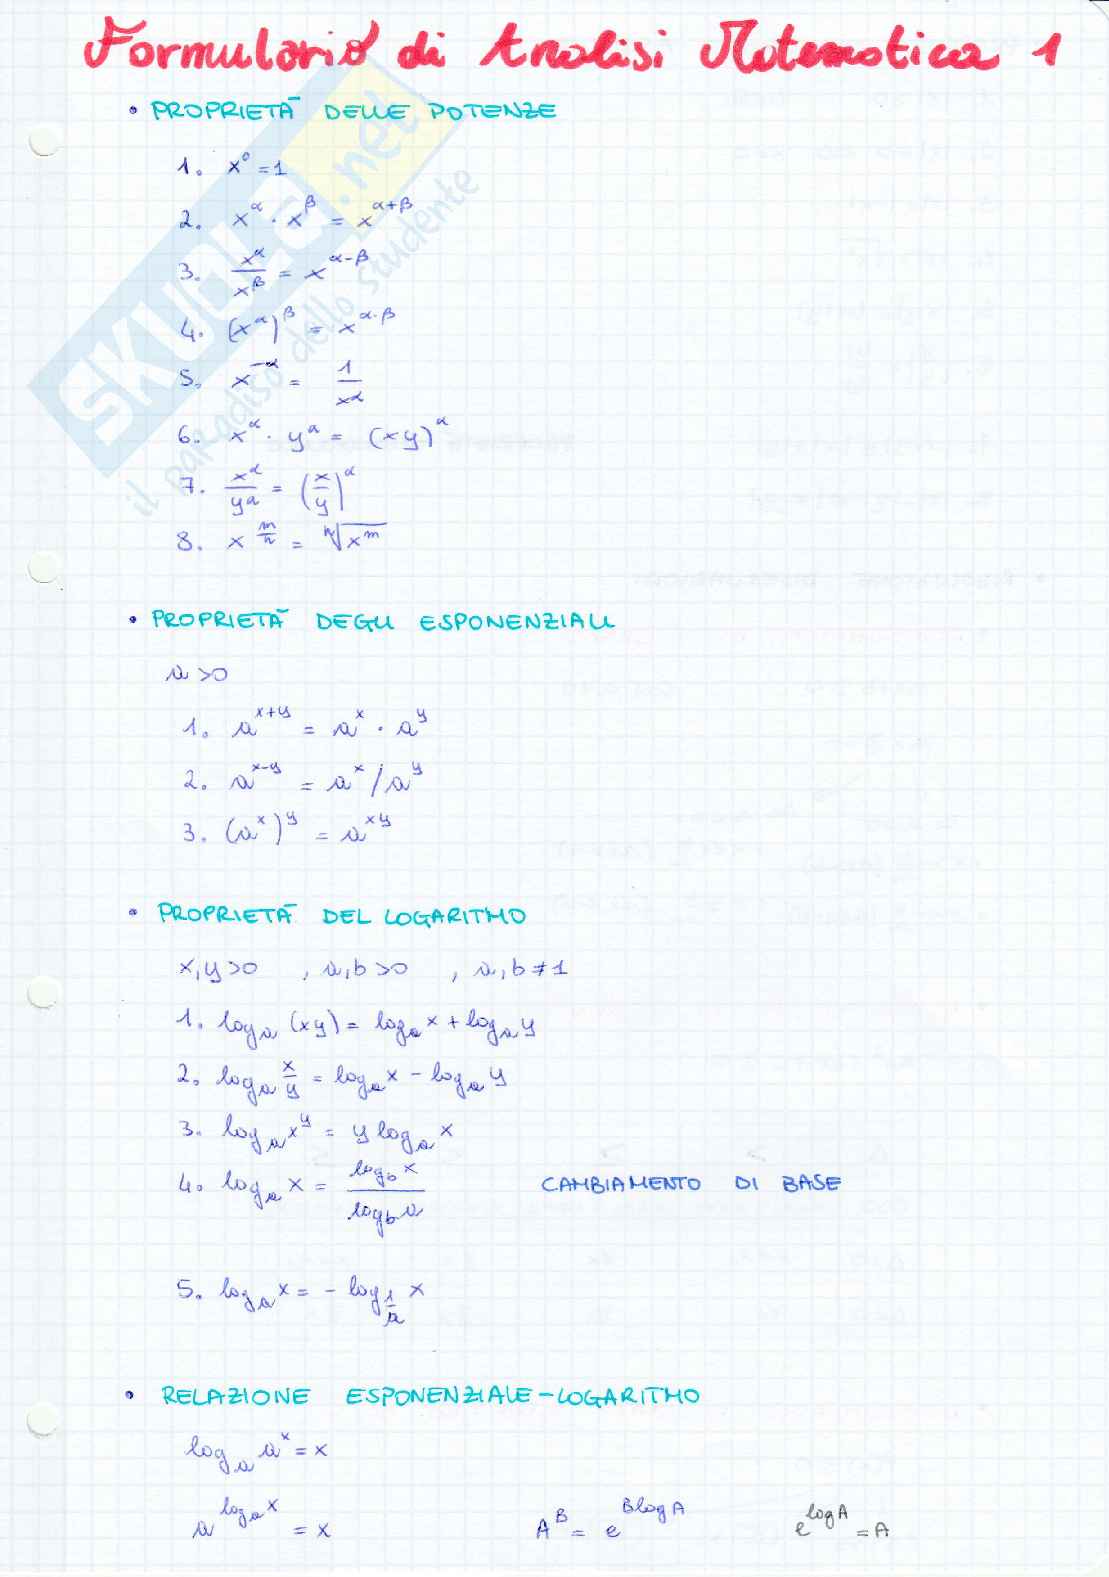 Formulario di Analisi Matematica 1
• PROPRIETÀ DELLE POTENZE
1. x⁰ = 1
2. x^α · x^β = x^(α+β)
3. x^α / x^β = x^(α-β)
4. (x^α)^β = x^(α·β)
5. x^(-α) = 1 / x^α
6. x^α · y^α = (xy)^α
7. x^α / y^α = (x/y)^α
8. x^(m/n) = ⁿ√(x^m)
• PROPRIETÀ DEGLI ESPONENZIALI
a > 0
1. a^(x+y) = a^x · a^y
2. a^(x-y) = a^x / a^y
3. (a^x)^y = a^(xy)
• PROPRIETÀ DEL LOGARITMO
x, y > 0 , a, b > 0 , a, b ≠ 1
1. log_a (xy) = log_a x + log_a y
2. log_a x/y = log_a x - log_a y
3. log_a x^y = y log_a x
4. log_a x = log_b x / log_b a CAMBIAMENTO DI BASE
5. log_a x = - log_(1/a) x
• RELAZIONE ESPONENZIALE-LOGARITMO
log_a a^x = x
a^(log_a x) = x A^B = e^(B log A) e^(log A) = A
SKUOLA.net
il paradiso dello studente